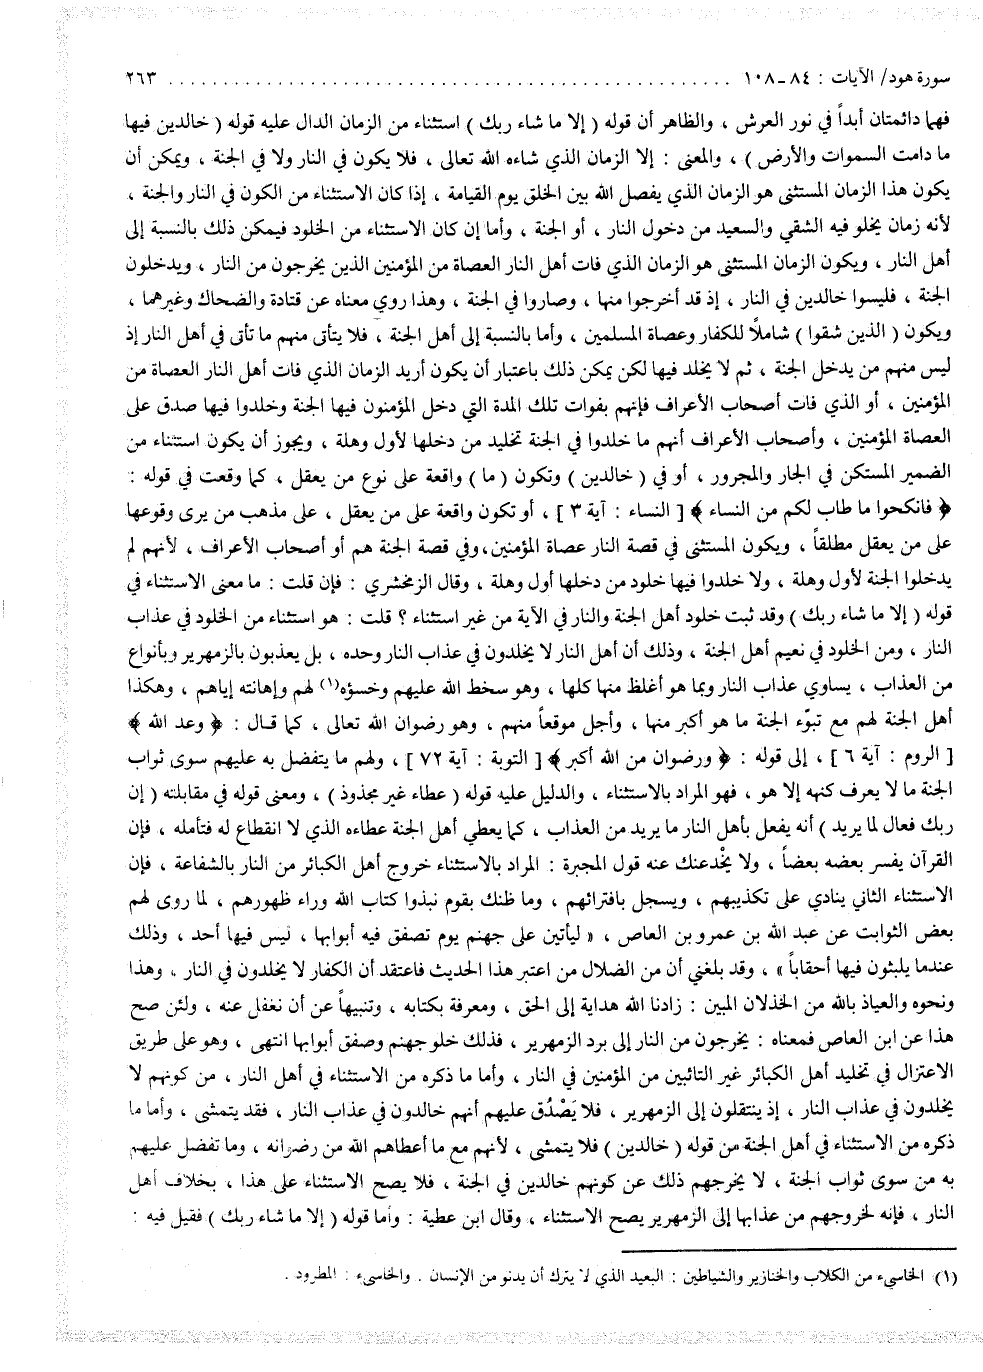 سورة هود/ الآيات : ٨٤ ـ ١٠٨ ................................................ ٢٦٣
فهما دائمتان أبداً في نور العرش ، والظاهر أن قوله ( إلا ما شاء ربك ) استثناء من الزمان الدال عليه قوله ( خالدين فيها
ما دامت السموات والأرض ) ، والمعنى : إلا الزمان الذي شاءه الله تعالى ، فلا يكون في النار ولا في الجنة ، ويمكن أن
يكون هذا الزمان المستثنى هو الزمان الذي يفصل الله بين الخلق يوم القيامة ، إذا كان الاستثناء من الكون في النار والجنة ،
لأنه زمان يخلو فيه الشقي والسعيد من دخول النار ، أو الجنة ، وأما إن كان الاستثناء من الخلود فيمكن ذلك بالنسبة إلى
أهل النار ، ويكون الزمان المستثنى هو الزمان الذي فات أهل النار العصاة من المؤمنين الذين يخرجون من النار ، ويدخلون
الجنة ، فليسوا خالدين في النار ، إذ قد أخرجوا منها ، وصاروا في الجنة ، وهذا روي معناه عن قتادة والضحاك وغيرهما ،
ويكون ( الذين شقوا ) شاملاً للكفار وعصاة المسلمين ، وأما بالنسبة إلى أهل الجنة ، فلا يتأتى منهم ما تأتى في أهل النار إذ
ليس منهم من يدخل الجنة ، ثم لا يخلد فيها لكن يمكن ذلك باعتبار أن يكون أريد الزمان الذي فات أهل النار العصاة من
المؤمنين ، أو الذي فات أصحاب الأعراف فإنهم بفوات تلك المدة التي دخل المؤمنون فيها الجنة وخلدوا فيها صدق على
العصاة المؤمنين ، وأصحاب الأعراف أنهم ما خلدوا في الجنة تخليد من دخلها لأول وهلة ، ويجوز أن يكون استثناء من
الضمير المستكن في الجار والمجرور ، أو في ( خالدين ) وتكون ( ما ) واقعة على نوع من يعقل ، كما وقعت في قوله :
﴿ فانكحوا ما طاب لكم من النساء ﴾ [ النساء : آية ٣ ] ، أو تكون واقعة على من يعقل ، على مذهب من يرى وقوعها
على من يعقل مطلقاً ، ويكون المستثنى في قصة النار عصاة المؤمنين ، وفي قصة الجنة هم أو أصحاب الأعراف ، لأنهم لم
يدخلوا الجنة لأول وهلة ، ولا خلدوا فيها خلود من دخلها أول وهلة ، وقال الزمخشري : فإن قلت : ما معنى الاستثناء في
قوله ( إلا ما شاء ربك ) وقد ثبت خلود أهل الجنة والنار في الآية من غير استثناء ؟ قلت : هو استثناء من الخلود في عذاب
النار ، ومن الخلود في نعيم أهل الجنة ، وذلك أن أهل النار لا يخلدون في عذاب النار وحده ، بل يعذبون بالزمهرير وبأنواع
من العذاب ، يساوي عذاب النار وبما هو أغلظ منها كلها ، وهو سخط الله عليهم وخسؤه(١) لهم وإهانته إياهم ، وهكذا
أهل الجنة لهم مع تبوّء الجنة ما هو أكبر منها ، وأجل موقعاً منهم ، وهو رضوان الله تعالى ، كما قال : ﴿ وعد الله ﴾
[ الروم : آية ٦ ] ، إلى قوله : ﴿ ورضوان من الله أكبر ﴾ [ التوبة : آية ٧٢ ] ، ولهم ما يتفضل به عليهم سوى ثواب
الجنة ما لا يعرف كنهه إلا هو ، فهو المراد بالاستثناء ، والدليل عليه قوله ( عطاء غير مجذوذ ) ، ومعنى قوله في مقابلته ( إن
ربك فعال لما يريد ) أنه يفعل بأهل النار ما يريد من العذاب ، كما يعطي أهل الجنة عطاءه الذي لا انقطاع له فتأمله ، فإن
القرآن يفسر بعضه بعضاً ، ولا يخْدعنك عنه قول المجبرة : المراد بالاستثناء خروج أهل الكبائر من النار بالشفاعة ، فإن
الاستثناء الثاني ينادي على تكذيبهم ، ويسجل بافترائهم ، وما ظنك بقوم نبذوا كتاب الله وراء ظهورهم ، لما روى لهم
بعض الثوابت عن عبد الله بن عمرو بن العاص ، « ليأتين على جهنم يوم تصفق فيه أبوابها ، ليس فيها أحد ، وذلك
عندما يلبثون فيها أحقاباً » ، وقد بلغني أن من الضلال من اعتبر هذا الحديث فاعتقد أن الكفار لا يخلدون في النار ، وهذا
ونحوه والعياذ بالله من الخذلان المبين : زادنا الله هداية إلى الحق ، ومعرفة بكتابه ، وتنبيهاً عن أن نغفل عنه ، ولئن صح
هذا عن ابن العاص فمعناه : يخرجون من النار إلى برد الزمهرير ، فذلك خلو جهنم وصفق أبوابها انتهى ، وهو على طريق
الاعتزال في تخليد أهل الكبائر غير التائبين من المؤمنين في النار ، وأما ما ذكره من الاستثناء في أهل النار ، من كونهم لا
يخلدون في عذاب النار ، إذ ينتقلون إلى الزمهرير ، فلا يَصْدُق عليهم أنهم خالدون في عذاب النار ، فقد يتمشى ، وأما ما
ذكره من الاستثناء في أهل الجنة من قوله ( خالدين ) فلا يتمشى ، لأنهم مع ما أعطاهم الله من رضوانه ، وما تفضل عليهم
به من سوى ثواب الجنة ، لا يخرجهم ذلك عن كونهم خالدين في الجنة ، فلا يصح الاستثناء على هذا ، بخلاف أهل
النار ، فإنه لخروجهم من عذابها إلى الزمهرير يصح الاستثناء ، وقال ابن عطية : وأما قوله ( إلا ما شاء ربك ) فقيل فيه :
(١) الخاسيء من الكلاب والخنازير والشياطين : البعيد الذي لا يترك أن يدنو من الإنسان . والخاسيء : المطرود .